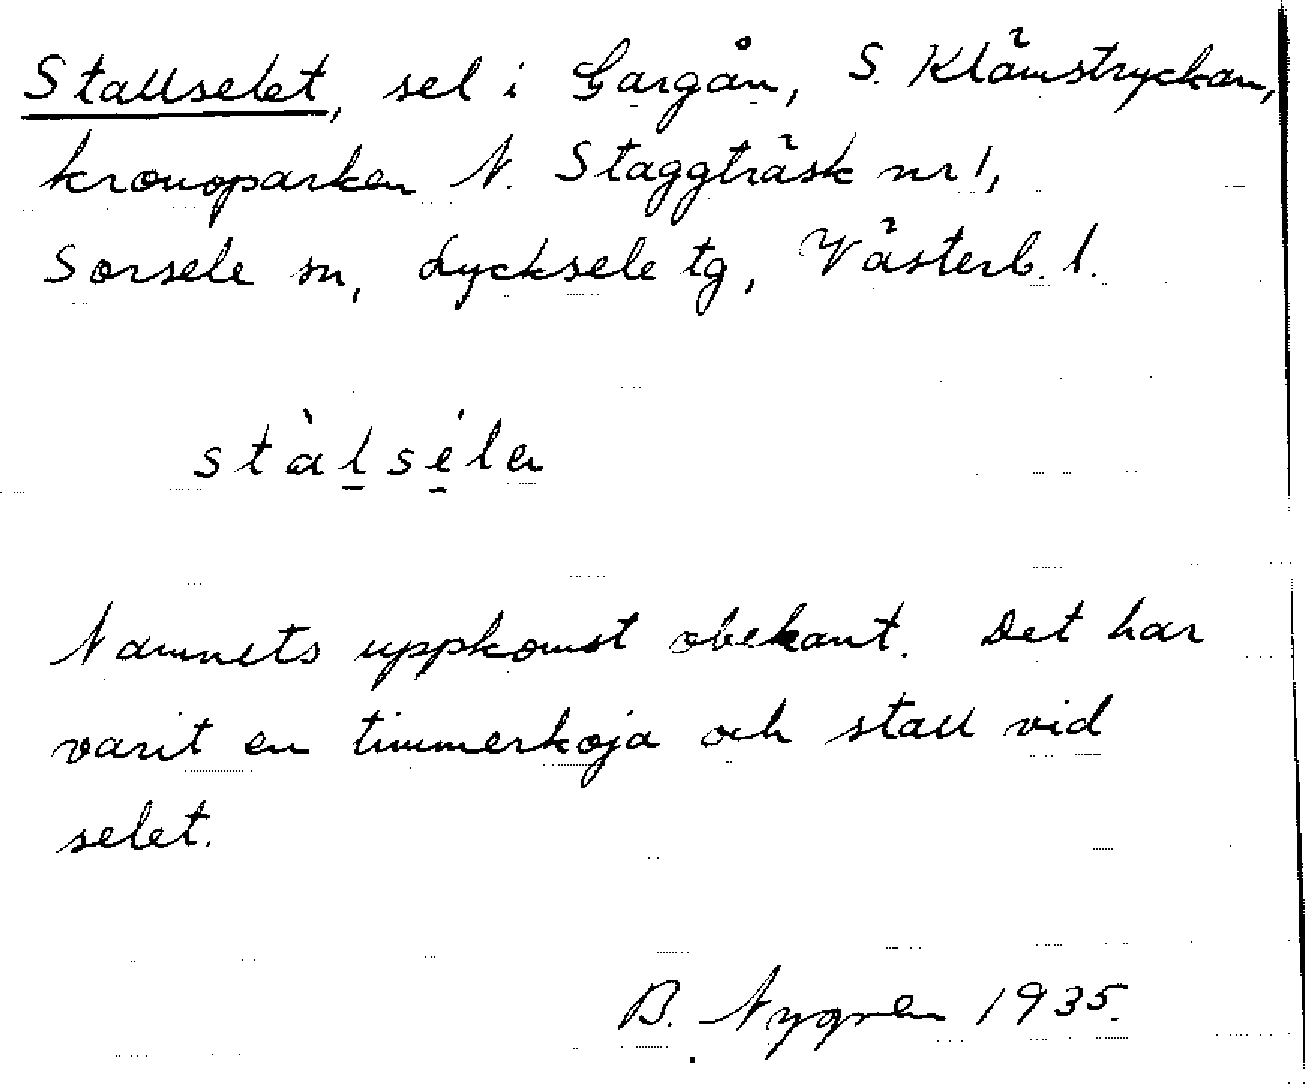 Stallselet, sel i Gargån, S. Klämstryckan,
kronoparken N. Staggträsk nr 1,
Sorsele sn, Lycksele tg, Västerb. l.
stàl̠sé̠len
Namnets uppkomst obekant. Det har
varit en timmerkoja och stall vid
selet.
B. Nygren 1935.